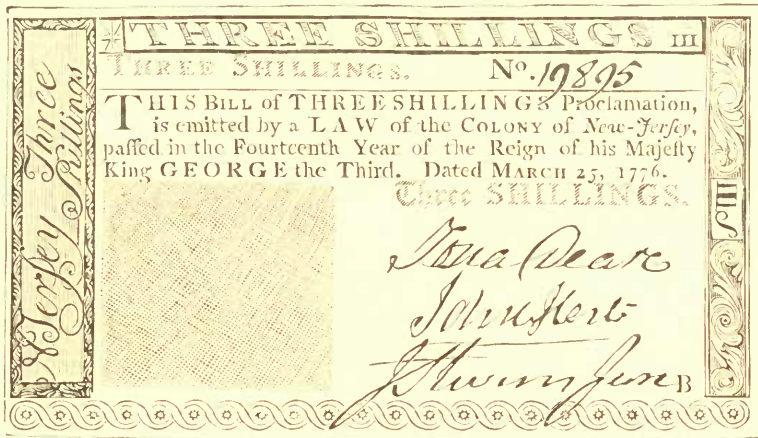 THREE SHILLINGS III
THREE SHILLINGS. No. 19895
THIS BILL of THREE SHILLINGS Proclamation,
is emitted by a LAW of the COLONY of New-Jerſey,
paſſed in the Fourteenth Year of the Reign of his Majeſty
King GEORGE the Third. Dated MARCH 25, 1776.
Three SHILLINGS.
Jona Deare
John Hart
B
N Jerſey Three
Shillings
IIIS